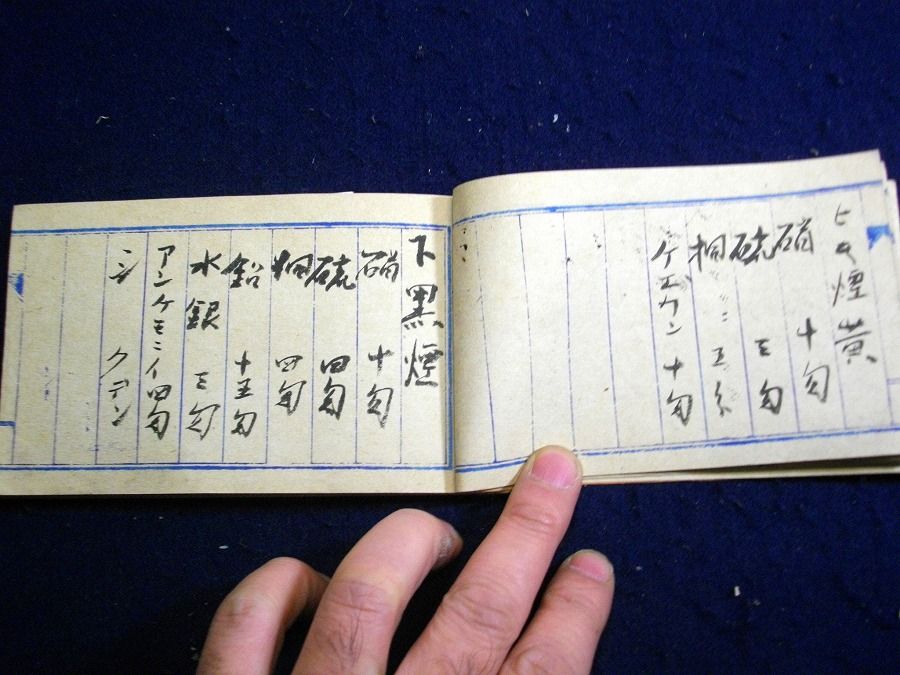 ヒル煙黄
硝 十匁
硫 三匁
桐 二匁五分
ケイカン 十匁
下黒煙
硝 十匁
硫 四匁
桐 四匁
鉛 十五匁
水銀 三匁
アンケモニイ 四匁
シン クデン